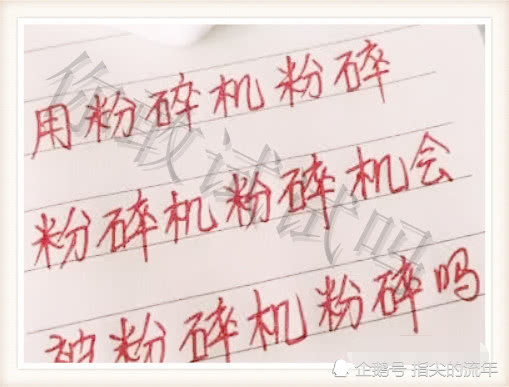 用粉碎机粉碎
粉碎机粉碎机会
被粉碎机粉碎吗
你敢试试吗
企鹅号 指尖的流年